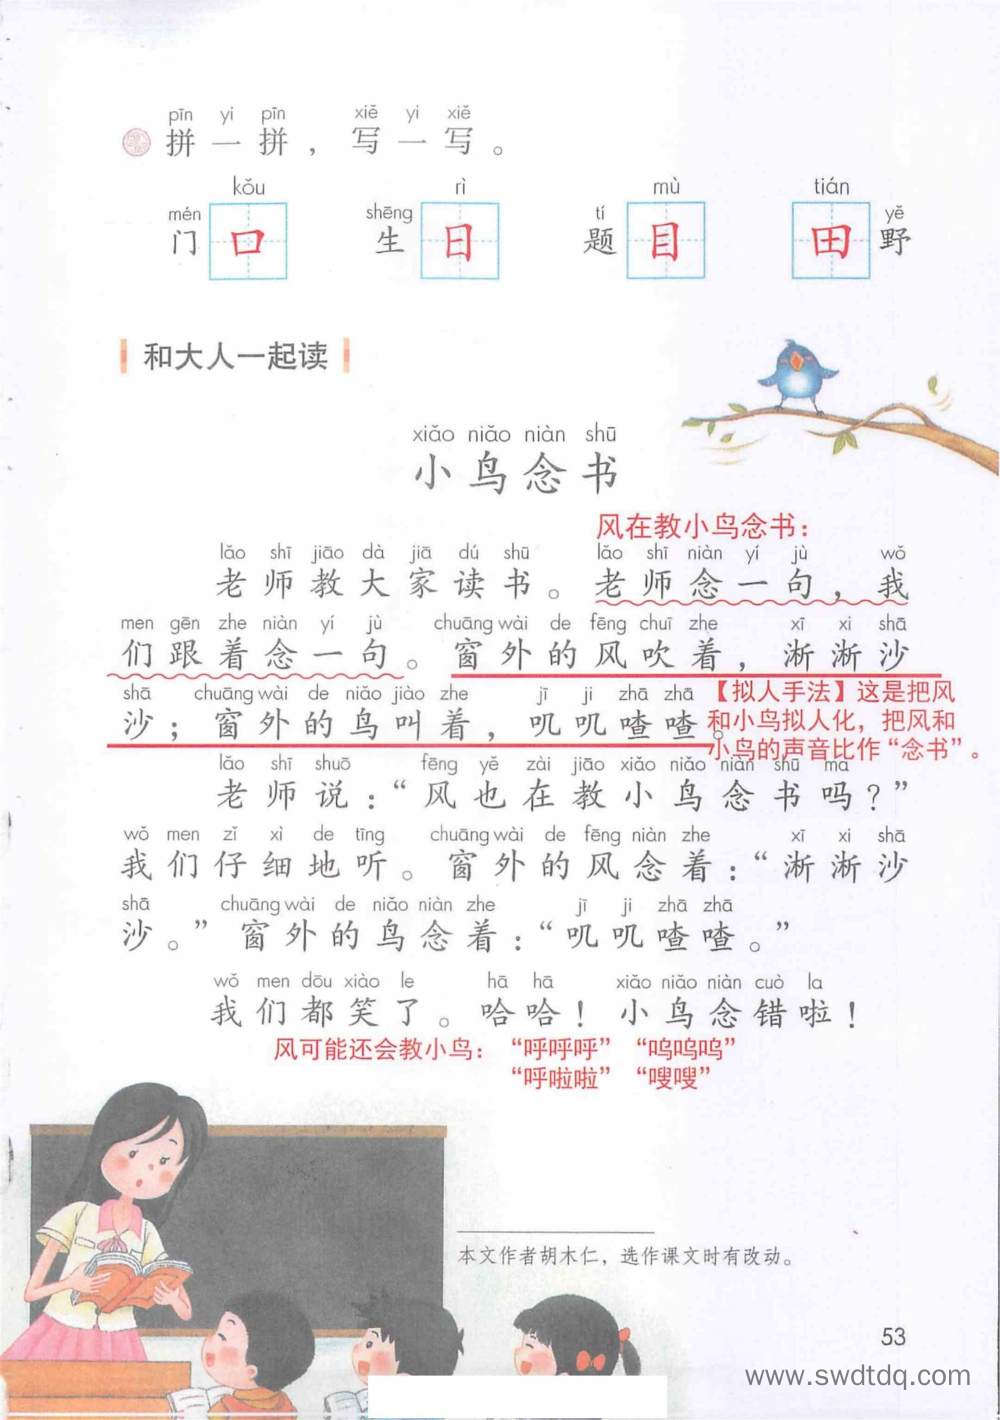 pīn yi pīn xiě yi xiě
拼一拼，写一写。
kǒu rì mù tián
mén shēng tí yě
门口 生日 题目 田野
和大人一起读
xiǎo niǎo niàn shū
小鸟念书
风在教小鸟念书：
lǎo shī jiāo dà jiā dú shū lǎo shī niàn yí jù wǒ
老师教大家读书。老师念一句，我
men gēn zhe niàn yí jù chuāng wài de fēng chuī zhe xī xi shā
们跟着念一句。窗外的风吹着，淅淅沙
shā chuāng wài de niǎo jiào zhe jī ji zhā zhā
沙；窗外的鸟叫着，叽叽喳喳。
【拟人手法】这是把风
和小鸟拟人化，把风和
小鸟的声音比作“念书”。
lǎo shī shuō fēng yě zài jiāo xiǎo niǎo niàn shū ma
老师说：“风也在教小鸟念书吗？”
wǒ men zǐ xì de tīng chuāng wài de fēng niàn zhe xī xi shā
我们仔细地听。窗外的风念着：“淅淅沙
shā chuāng wài de niǎo niàn zhe jī ji zhā zhā
沙。”窗外的鸟念着：“叽叽喳喳。”
wǒ men dōu xiào le hā hā xiǎo niǎo niàn cuò la
我们都笑了。哈哈！小鸟念错啦！
风可能还会教小鸟：“呼呼呼” “呜呜呜”
“呼啦啦” “嗖嗖”
本文作者胡木仁，选作课文时有改动。
53
www.swdtdq.com